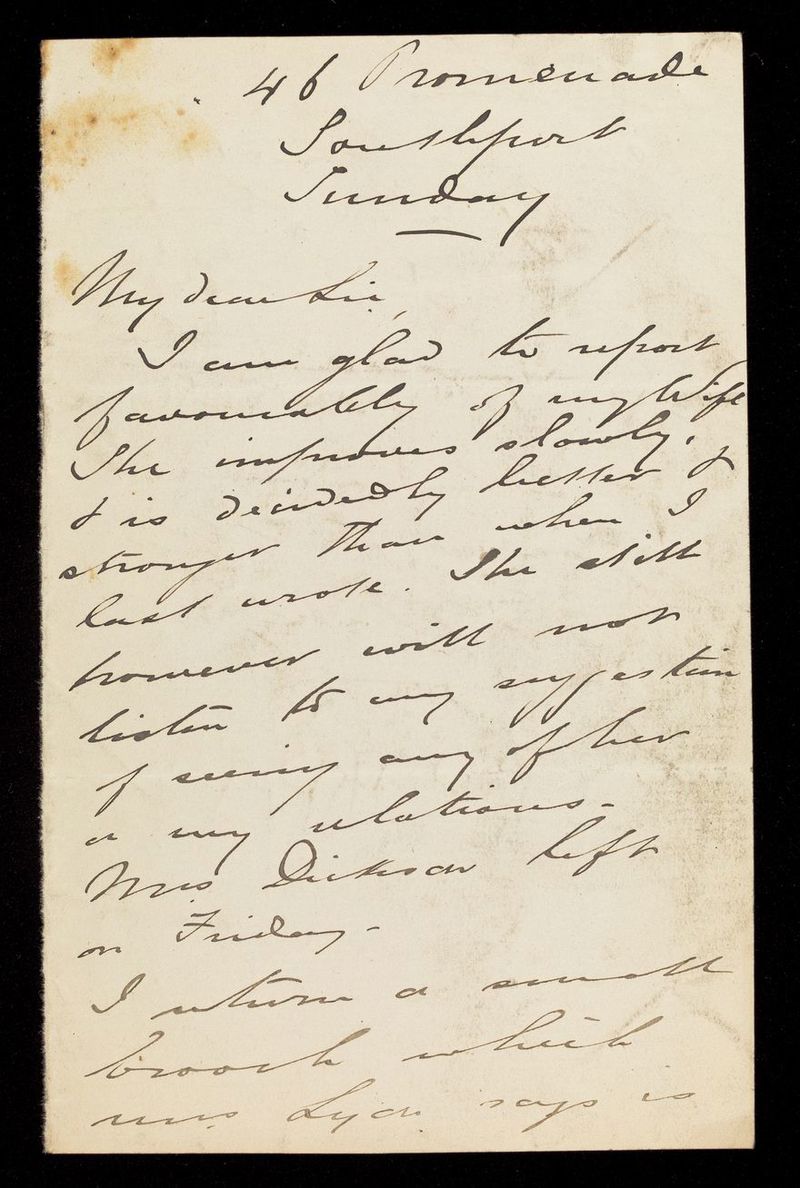 46 Promenade
Southport
Sunday
My dear Sir,
I am glad to report
favourably of my Wife
She improves slowly,
& is decidedly better &
stronger than when I
last wrote. She still
however will not
listen to any suggestion
of seeing any of her
or my relations.
Mrs Dickson left
on Friday.
I return a small
brooch which
mrs says is